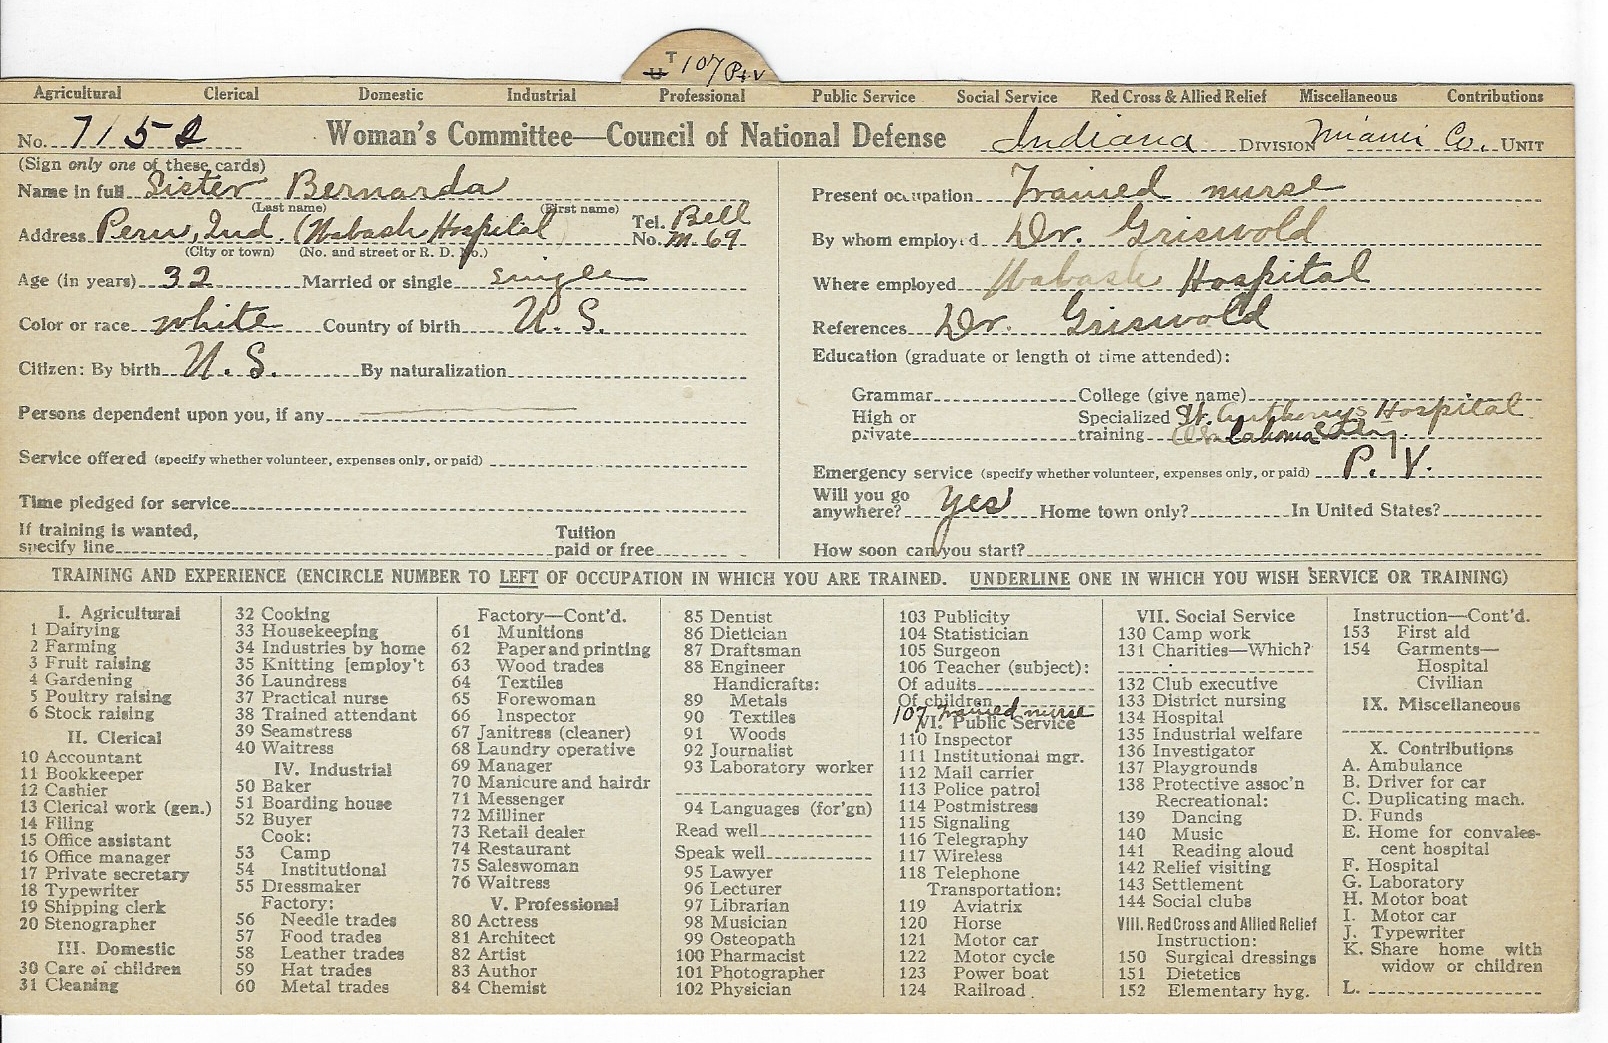 T 107 P+V
U
Agricultural Clerical Domestic Industrial Professional Public Service Social Service Red Cross & Allied Relief Miscellaneous Contributions
No. 7152 Woman's Committee—Council of National Defense Indiana DIVISION Miami Co. UNIT
(Sign only one of these cards)
Name in full Sister Bernarda
(Last name) (First name)
Address Peru, Ind. (Wabash Hospital) Tel. No. Bell M. 69
(City or town) (No. and street or R. D. No.)
Age (in years) 32 Married or single single
Color or race white Country of birth U. S.
Citizen: By birth U. S. By naturalization
Persons dependent upon you, if any
Service offered (specify whether volunteer, expenses only, or paid)
Time pledged for service
If training is wanted,
specify line Tuition paid or free
Present occupation Trained nurse
By whom employed Dr. Griswold
Where employed Wabash Hospital
References Dr. Griswold
Education (graduate or length of time attended):
Grammar College (give name)
High or private Specialized training St. Anthonys Hospital
Oklahoma City
Emergency service (specify whether volunteer, expenses only, or paid) P. V.
Will you go anywhere? Yes Home town only? In United States?
How soon can you start?
TRAINING AND EXPERIENCE (ENCIRCLE NUMBER TO LEFT OF OCCUPATION IN WHICH YOU ARE TRAINED. UNDERLINE ONE IN WHICH YOU WISH SERVICE OR TRAINING)
I. Agricultural
1 Dairying
2 Farming
3 Fruit raising
4 Gardening
5 Poultry raising
6 Stock raising
II. Clerical
10 Accountant
11 Bookkeeper
12 Cashier
13 Clerical work (gen.)
14 Filing
15 Office assistant
16 Office manager
17 Private secretary
18 Typewriter
19 Shipping clerk
20 Stenographer
III. Domestic
30 Care of children
31 Cleaning
32 Cooking
33 Housekeeping
34 Industries by home
35 Knitting [employ't
36 Laundress
37 Practical nurse
38 Trained attendant
39 Seamstress
40 Waitress
IV. Industrial
50 Baker
51 Boarding house
52 Buyer
Cook:
53 Camp
54 Institutional
55 Dressmaker
Factory:
56 Needle trades
57 Food trades
58 Leather trades
59 Hat trades
60 Metal trades
Factory—Cont'd.
61 Munitions
62 Paper and printing
63 Wood trades
64 Textiles
65 Forewoman
66 Inspector
67 Janitress (cleaner)
68 Laundry operative
69 Manager
70 Manicure and hairdr
71 Messenger
72 Milliner
73 Retail dealer
74 Restaurant
75 Saleswoman
76 Waitress
V. Professional
80 Actress
81 Architect
82 Artist
83 Author
84 Chemist
85 Dentist
86 Dietician
87 Draftsman
88 Engineer
Handicrafts:
89 Metals
90 Textiles
91 Woods
92 Journalist
93 Laboratory worker
94 Languages (for'gn)
Read well
Speak well
95 Lawyer
96 Lecturer
97 Librarian
98 Musician
99 Osteopath
100 Pharmacist
101 Photographer
102 Physician
103 Publicity
104 Statistician
105 Surgeon
106 Teacher (subject):
Of adults
Of children
107 trained nurse
VI. Public Service
110 Inspector
111 Institutional mgr.
112 Mail carrier
113 Police patrol
114 Postmistress
115 Signaling
116 Telegraphy
117 Wireless
118 Telephone
Transportation:
119 Aviatrix
120 Horse
121 Motor car
122 Motor cycle
123 Power boat
124 Railroad
VII. Social Service
130 Camp work
131 Charities—Which?
132 Club executive
133 District nursing
134 Hospital
135 Industrial welfare
136 Investigator
137 Playgrounds
138 Protective assoc'n
Recreational:
139 Dancing
140 Music
141 Reading aloud
142 Relief visiting
143 Settlement
144 Social clubs
VIII. Red Cross and Allied Relief
Instruction:
150 Surgical dressings
151 Dietetics
152 Elementary hyg.
Instruction—Cont'd.
153 First aid
154 Garments—
Hospital
Civilian
IX. Miscellaneous
X. Contributions
A. Ambulance
B. Driver for car
C. Duplicating mach.
D. Funds
E. Home for convales-
cent hospital
F. Hospital
G. Laboratory
H. Motor boat
I. Motor car
J. Typewriter
K. Share home with
widow or children
L.